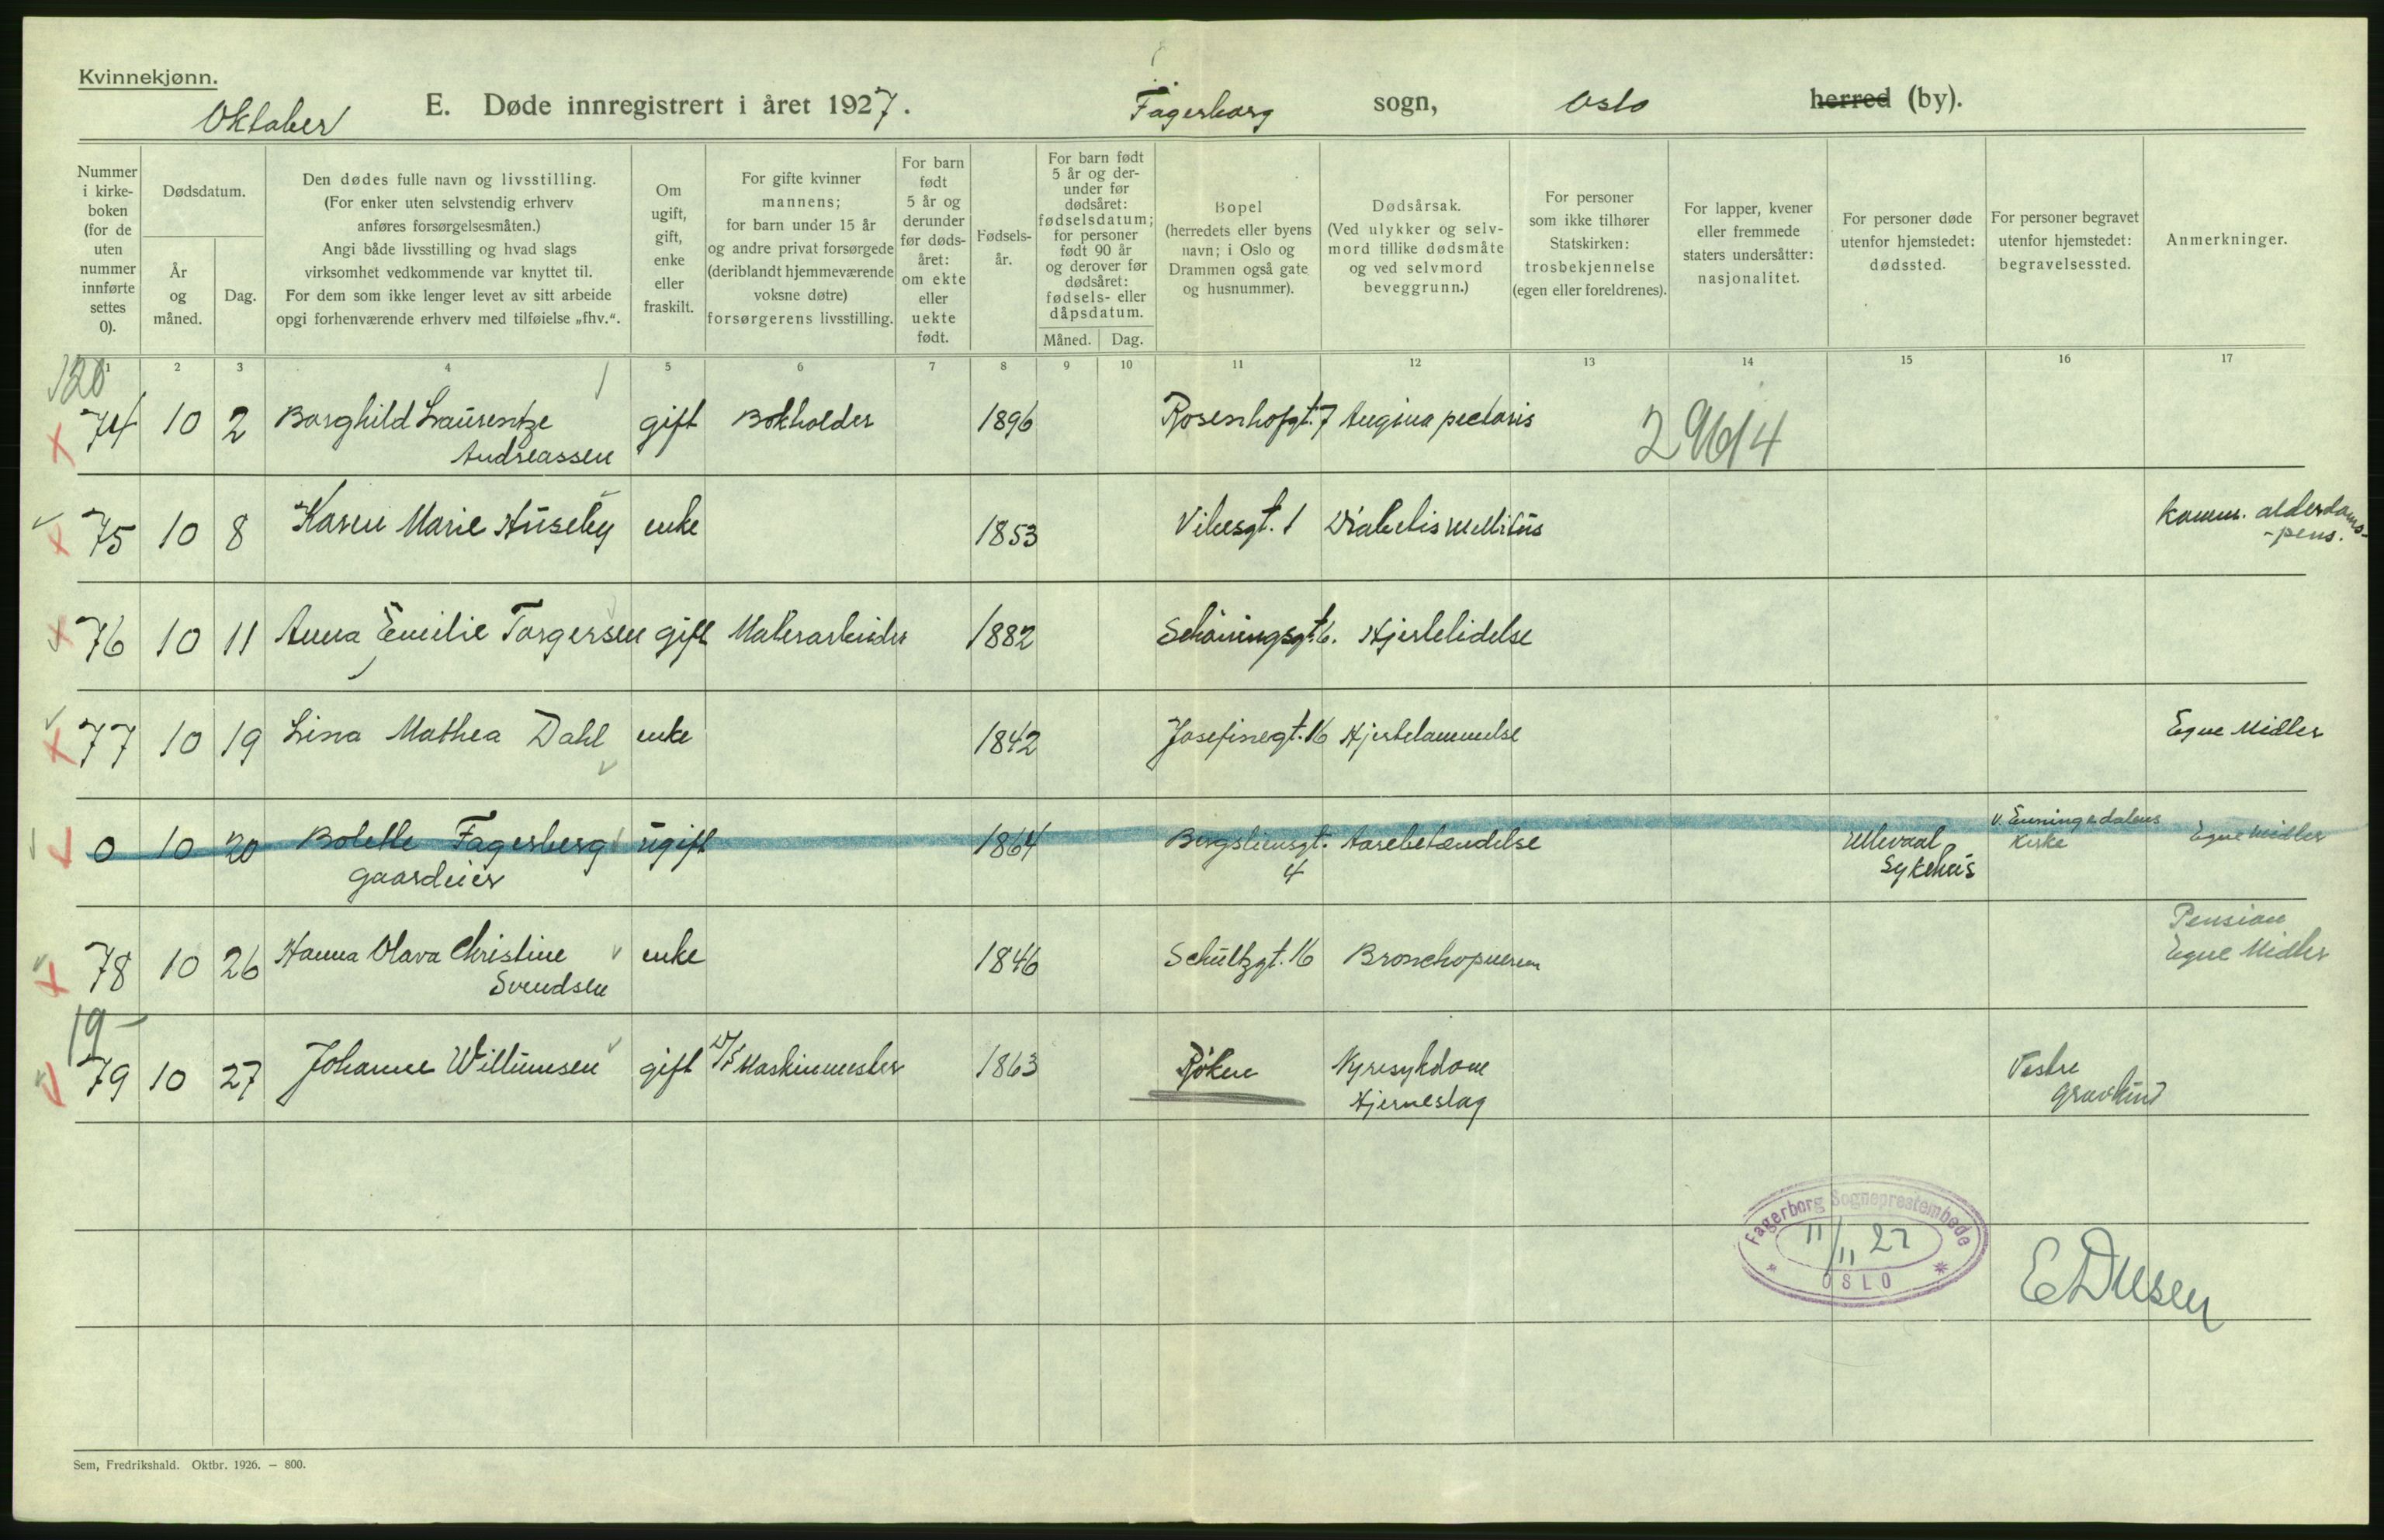 Kvinnekjønn.
Oktober
E. Døde innregistrert i året 1927.
Fagerborg sogn, Oslo herred (by).
Nummer i kirkeboken (for de uten nummer innførte settes 0).
Dødsdatum.
År og måned.
Dag.
Den dødes fulle navn og livsstilling.
(For enker uten selvstendig erhverv
anføres forsørgelsesmåten.)
Angi både livsstilling og hvad slags
virksomhet vedkommende var knyttet til.
For dem som ikke lenger levet av sitt arbeide
opgi forhenværende erhverv med tilføielse „fhv.“.
Om
ugift,
gift,
enke
eller
fraskilt.
For gifte kvinner
mannens;
for barn under 15 år
og andre privat forsørgede
(deriblandt hjemmeværende
voksne døtre)
forsørgerens livsstilling.
For barn
født
5 år og
derunder
før døds-
året:
om ekte
eller
uekte
født.
Fødsels-
år.
For barn født
5 år og der-
under før
dødsåret:
fødselsdatum;
for personer
født 90 år
og derover før
dødsåret:
fødsels- eller
dåpsdatum.
Måned. Dag.
Bopel
(herredets eller byens
navn; i Oslo og
Drammen også gate
og husnummer).
Dødsårsak.
(Ved ulykker og selv-
mord tillike dødsmåte
og ved selvmord
beveggrunn.)
For personer
som ikke tilhører
Statskirken:
trosbekjennelse
(egen eller foreldrenes).
For lapper, kvener
eller fremmede
staters undersåtter:
nasjonalitet.
For personer døde
utenfor hjemstedet:
dødssted.
For personer begravet
utenfor hjemstedet:
begravelsessted.
Anmerkninger.
1 2 3 4 5 6 7 8 9 10 11 12 13 14 15 16 17
120
74 10 2 Borghild Laurentze gift Bokholder 1896 Rosenhofgt. 7 Angina pectoris 29614
Andreassen
75 10 8 Karen Marie Huseby enke 1853 Vibesgt. 1 Diabetis mellitus Komm. alderdoms-
-pens.
76 10 11 Anna Emilie Torgersen gift Malerarbeider 1882 Schöningsgt. 6. Hjertelidelse
77 10 19 Lina Mathea Dahl enke 1842 Josefinegt. 16 Hjertelammelse Egne Midler
0 10 20 Bolette Fagerberg ugift 1864 Bergsliensgt. Aarebetændelse Ullevaal v. Enningedalens Egne Midler
gaardeier 4 Sykehus Kirke
78 10 26 Hanna Olava Christine enke 1846 Schultzgt. 16 Bronchopneum Pension
Svendsen Egne Midler
19
79 10 27 Johanne Willumsen gift D/S Maskinmester 1863 Røken Nyresykdom Vestre
Hjerneslag Gravlund
Fagerborg Sogneprestembede
11/11 27
OSLO
Sem, Fredrikshald. Oktbr. 1926. — 800.